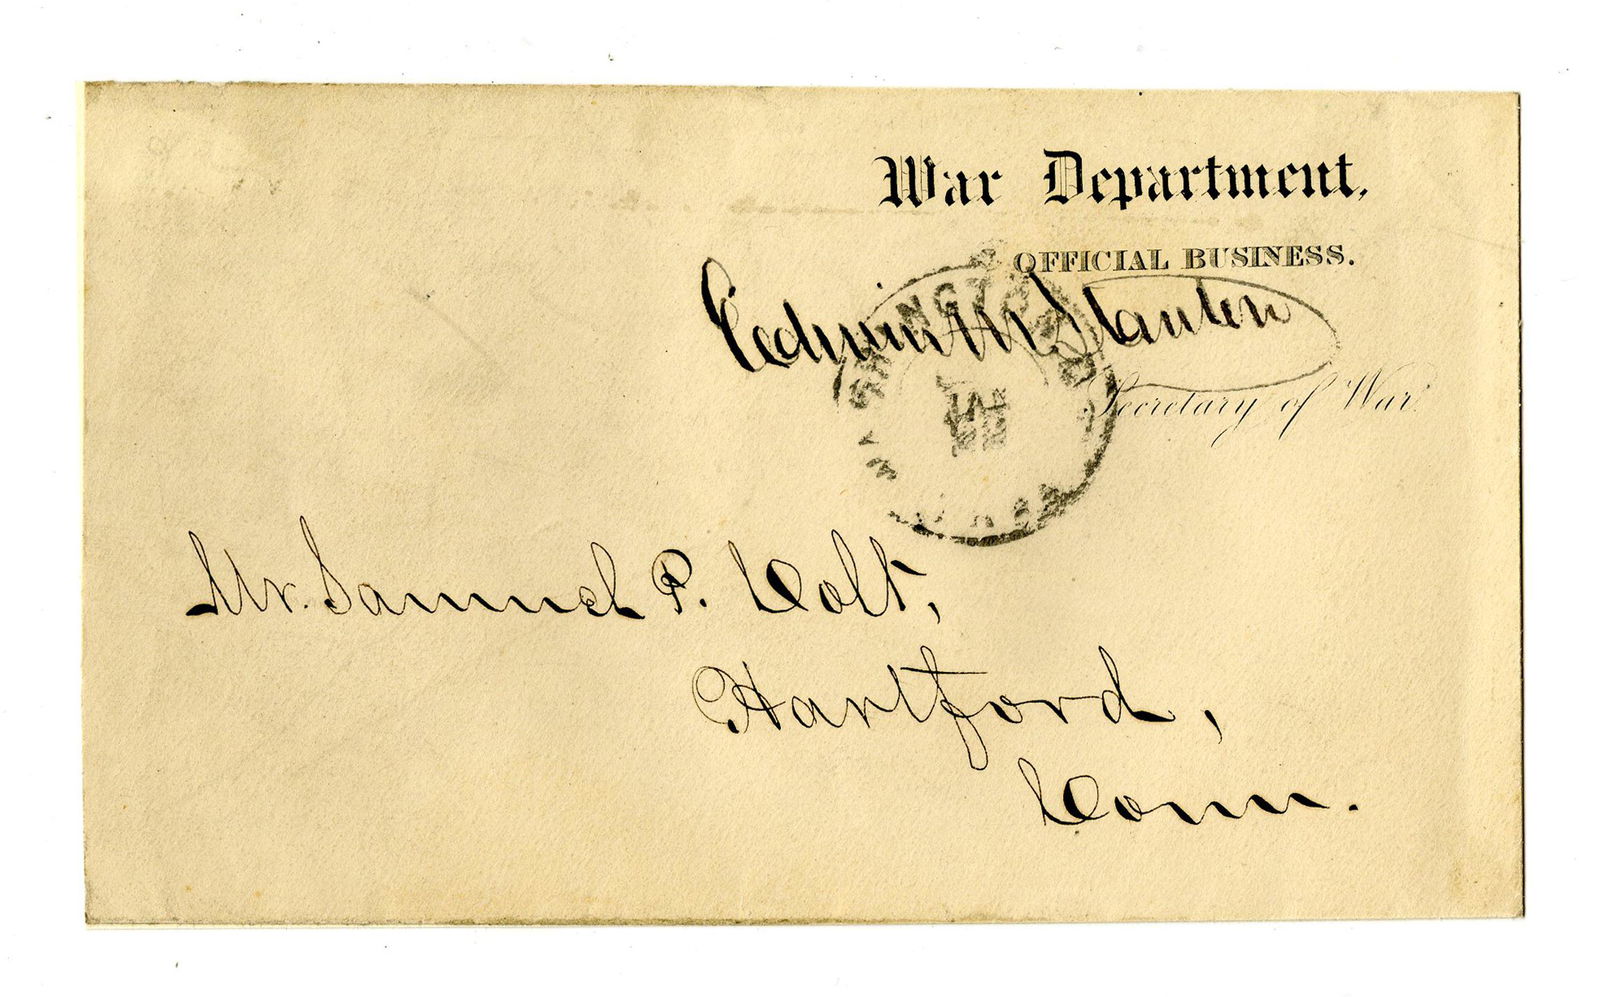 War Department,
OFFICIAL BUSINESS.
Edwin M Stanton
Secretary of War
WASHINGTON
JAN
Mr. Samuel P. Colt,
Hartford,
Conn.